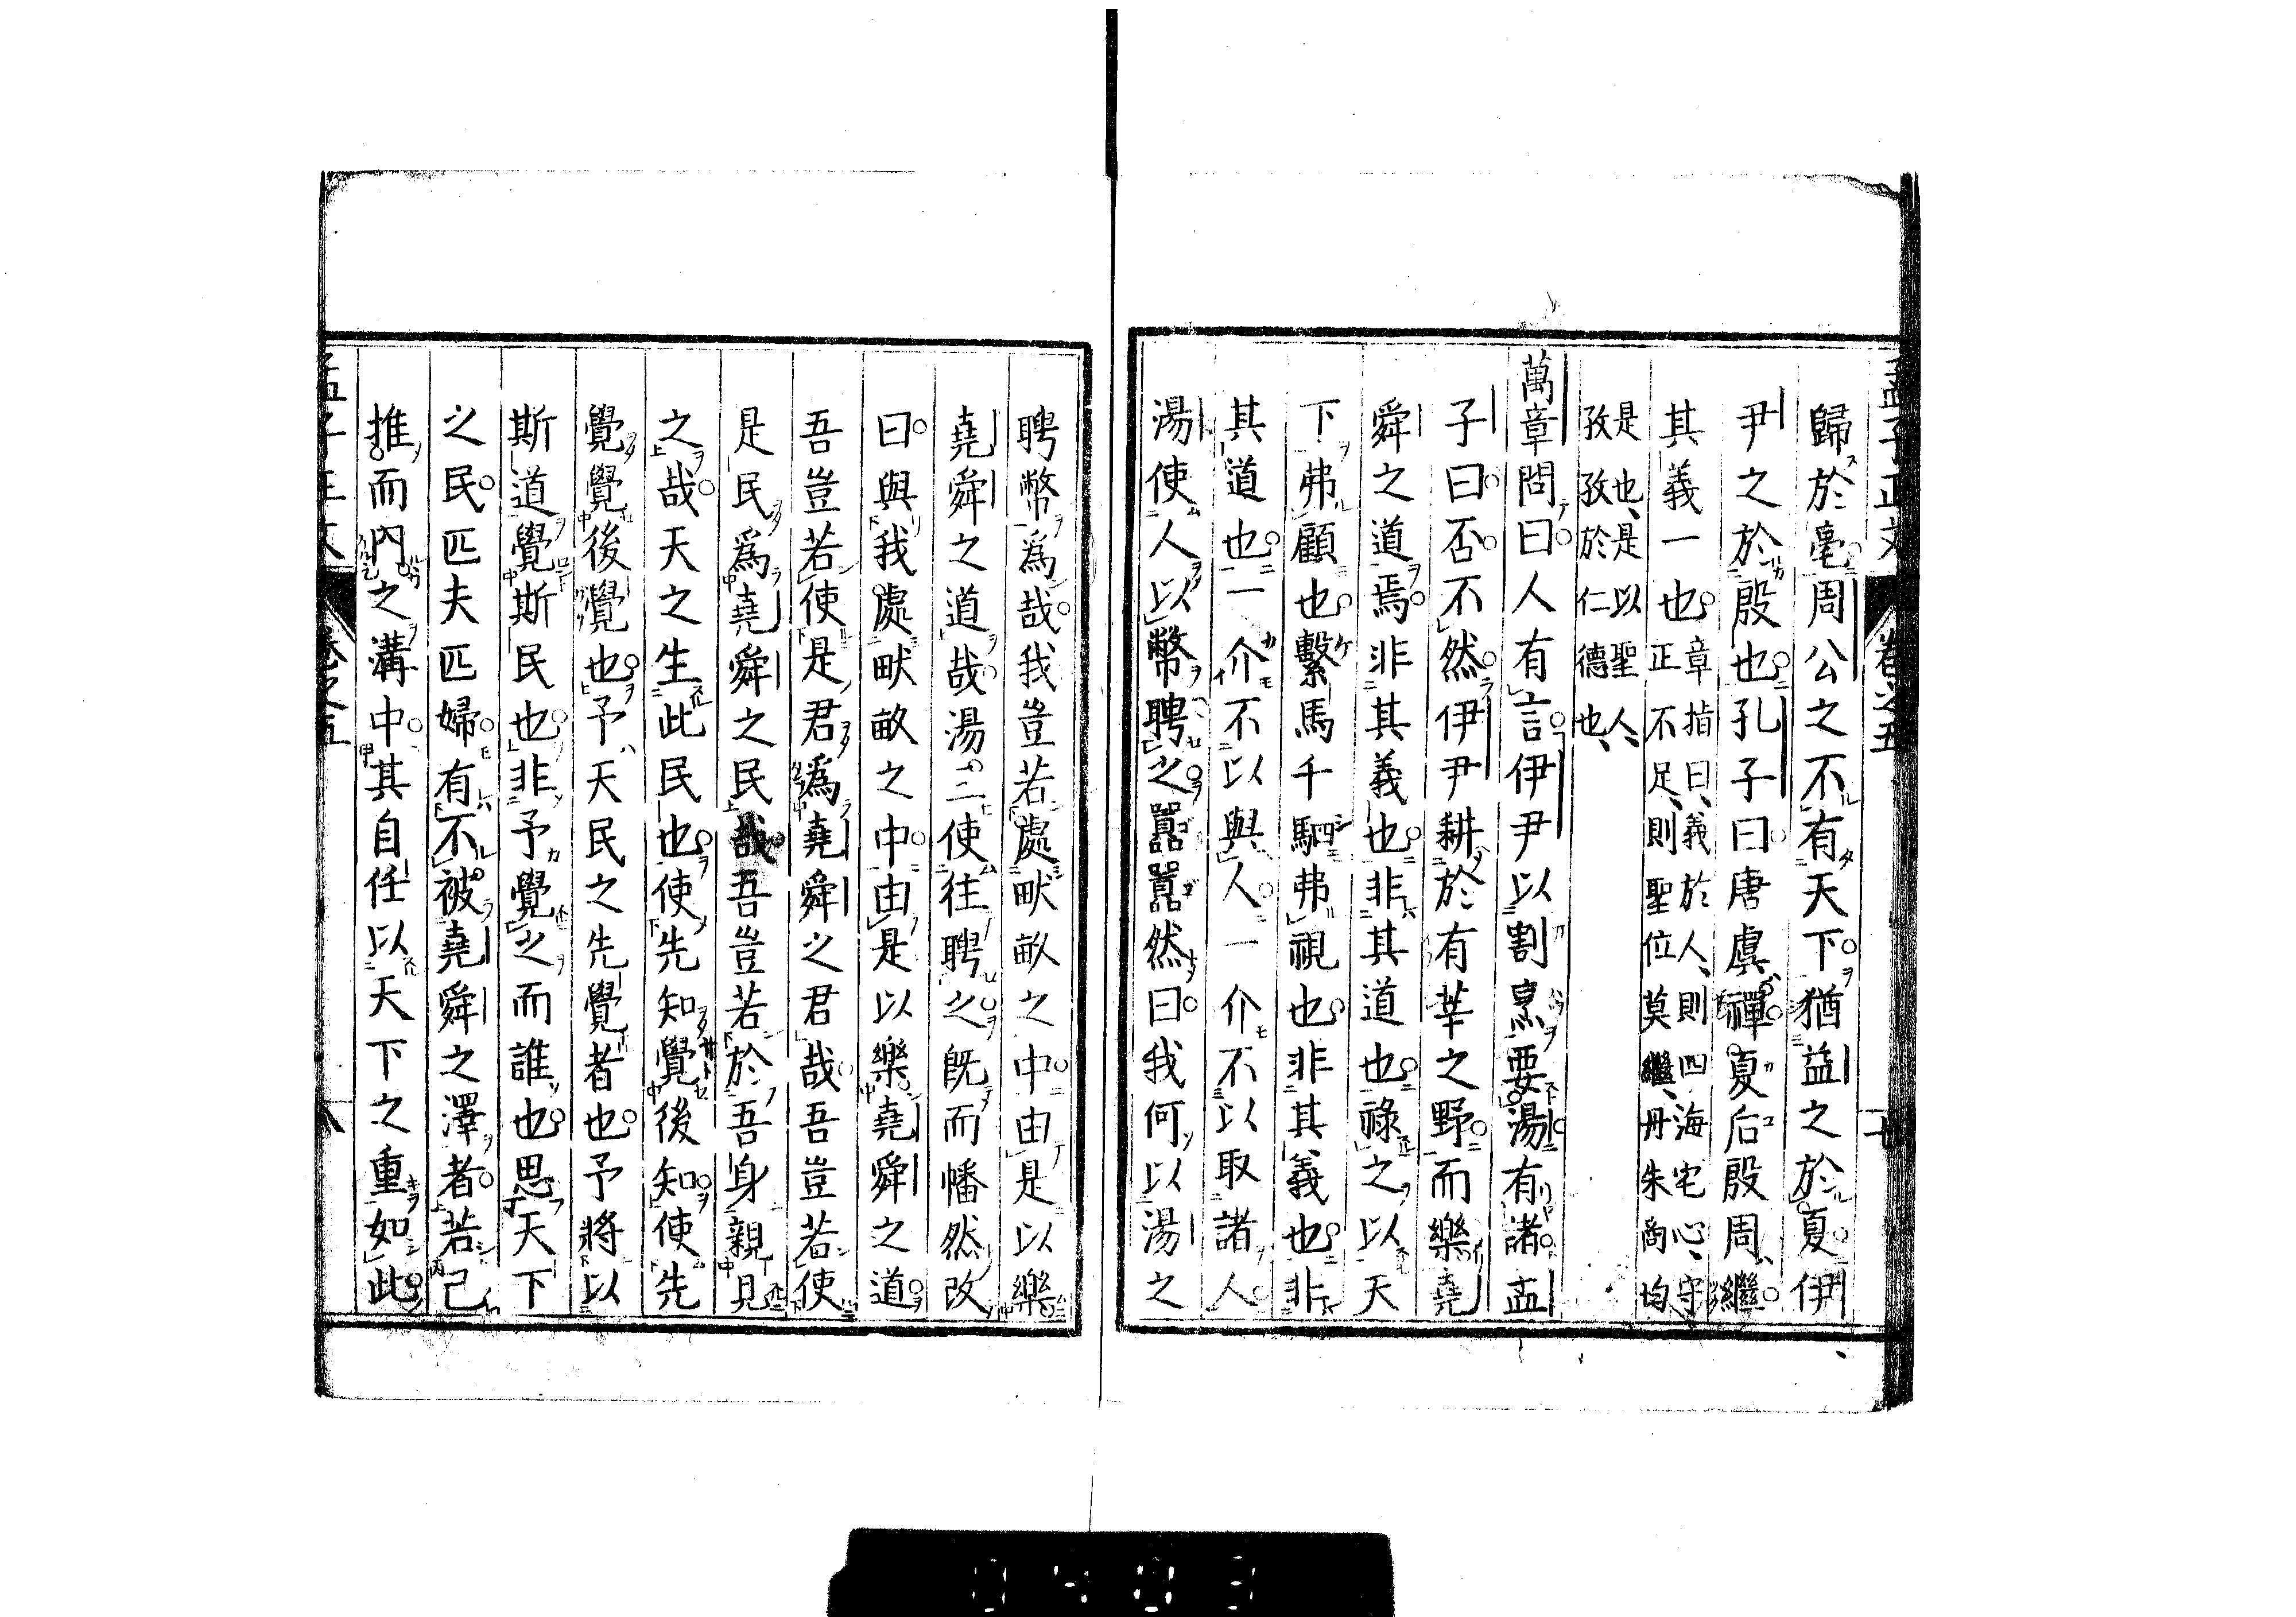 歸於亳周公之不有天下猶益之於夏伊
尹之於殷也孔子曰唐虞禪夏后殷周繼
其義一也章指曰義於人則四海宅心守
正不足則聖位莫繼丹朱啇均
是也是以聖人
孜孜於仁德也
萬章問曰人有言伊尹以割烹要湯有諸孟
子曰否不然伊尹耕於有莘之野而樂堯
舜之道焉非其義也非其道也祿之以天
下弗顧也繫馬千駟弗視也非其義也非
其道也一介不以與人一介不以取諸人
湯使人以幣聘之囂囂然曰我何以湯之
聘幣爲哉我豈若處畎畝之中由是以樂
堯舜之道哉湯三使往聘之既而幡然改
曰與我處畎畝之中由是以樂堯舜之道
吾豈若使是君爲堯舜之君哉吾豈若使
是民爲堯舜之民哉吾豈若於吾身親見
之哉天之生此民也使先知覺後知使先
覺覺後覺也予天民之先覺者也予將以
斯道覺斯民也非予覺之而誰也思天下
之民匹夫匹婦有不被堯舜之澤者若己
推而內之溝中其自任以天下之重如此